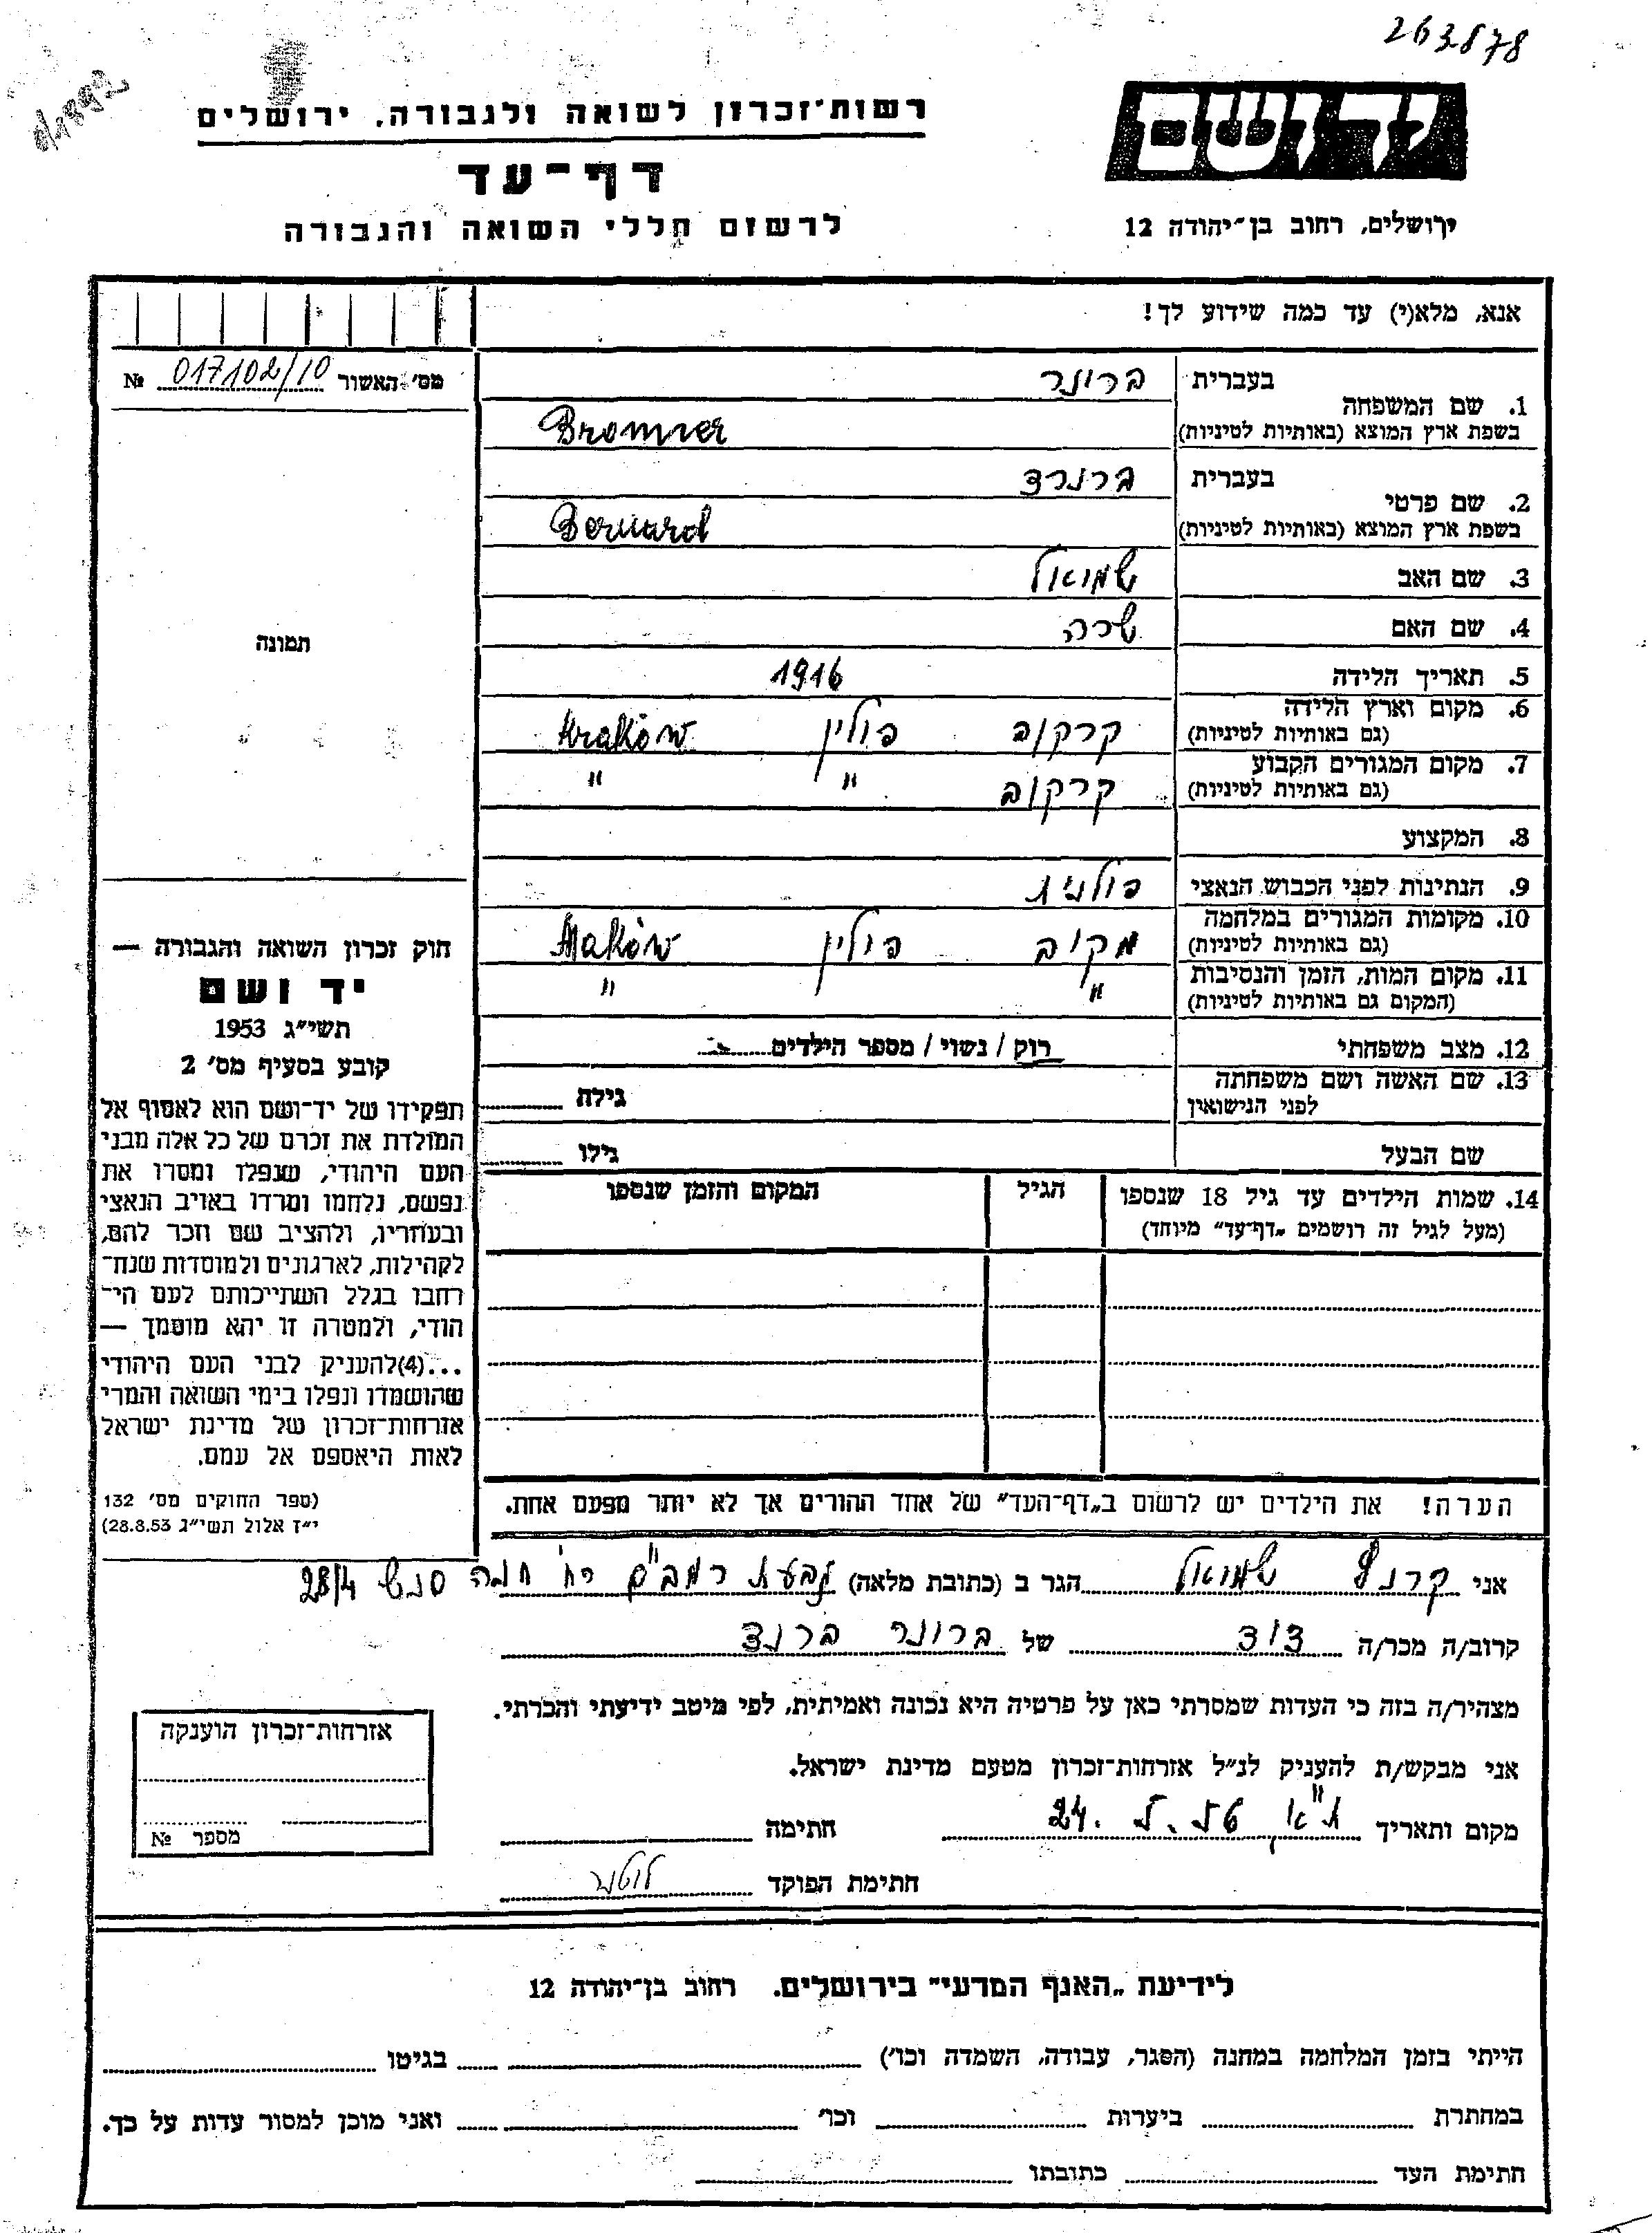 263878
רשות־זכרון לשואה ולגבורה, ירושלים
דף־עד
לרשום חללי השואה והגבורה
יד ושם
ירושלים, רחוב בן־יהודה 12
אנא, מלא(י) עד כמה שידוע לך!
מס׳ האשור 017102/10 №
תמונה
1. שם המשפחה בעברית ברונר
בשפת ארץ המוצא (באותיות לטיניות) Bronner
2. שם פרטי בעברית ברנרד
בשפת ארץ המוצא (באותיות לטיניות) Bernard
3. שם האב שמואל
4. שם האם שרה
5. תאריך הלידה 1916
6. מקום וארץ הלידה (גם באותיות לטיניות) קרקוב פולין Kraków
7. מקום המגורים הקבוע (גם באותיות לטיניות) קרקוב " "
8. המקצוע
9. הנתינות לפני הכבוש הנאצי פולנית
10. מקומות המגורים במלחמה (גם באותיות לטיניות) מקוב פולין Maków
11. מקום המות, הזמן והנסיבות (המקום גם באותיות לטיניות) " "
12. מצב משפחתי רוק / נשוי / מספר הילדים
13. שם האשה ושם משפחתה לפני הנישואין גילה
שם הבעל גילו
14. שמות הילדים עד גיל 18 שנספו הגיל המקום והזמן שנספו
(מעל לגיל זה רושמים „דף־עד" מיוחד)
הערה! את הילדים יש לרשום ב„דף־העד" של אחד ההורים אך לא יותר מפעם אחת.
חוק זכרון השואה והגבורה —
יד ושם
תשי״ג 1953
קובע בסעיף מס׳ 2
תפקידו של יד־ושם הוא לאסוף אל
המולדת את זכרם של כל אלה מבני
העם היהודי, שנפלו ומסרו את
נפשם, נלחמו ומרדו באויב הנאצי
ובעוזריו, ולהציב שם וזכר להם,
לקהילות, לארגונים ולמוסדות שנח־
רחבו בגלל השתייכותם לעם הי־
הודי, ולמטרה זו יהא מוסמך —
...(4)להעניק לבני העם היהודי
שהושמדו ונפלו בימי השואה והמרי
אזרחות־זכרון של מדינת ישראל
לאות היאספם אל עמם.
(ספר החוקים מס׳ 132
י״ז אלול תשי״ג 28.8.53)
אני שמואל הגר ב (כתובת מלאה) גבעת רמב"ם רח' חנה סנש 28/4
קרוב/ה מכר/ה דוד של ברונר ברנד
מצהיר/ה בזה כי העדות שמסרתי כאן על פרטיה היא נכונה ואמיתית, לפי מיטב ידיעתי והכרתי.
אני מבקש/ת להעניק לנ״ל אזרחות־זכרון מטעם מדינת ישראל.
מקום ותאריך ת"א, חתימה
חתימת הפוקד
אזרחות־זכרון הוענקה
מספר №
לידיעת „האנף המדעי" בירושלים. רחוב בן־יהודה 12
הייתי בזמן המלחמה במחנה (הסגר, עבודה, השמדה וכו׳) בגיטו
במחתרת ביערות וכו׳ ואני מוכן למסור עדות על כך.
חתימת העד כתובתו